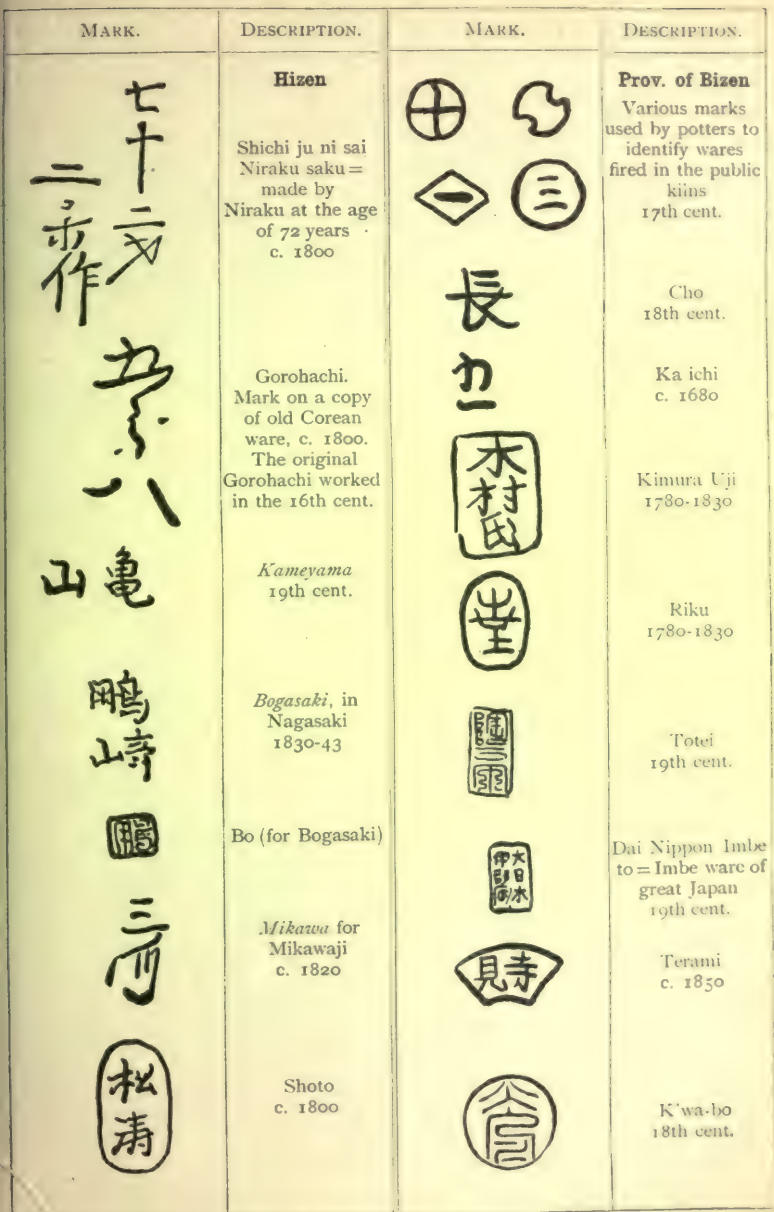 MARK.
DESCRIPTION.
MARK.
DESCRIPTION.
七十二才
作
Hizen
Shichi ju ni sai
Niraku saku =
made by
Niraku at the age
of 72 years
c. 1800
八
Gorohachi.
Mark on a copy
of old Corean
ware, c. 1800.
The original
Gorohachi worked
in the 16th cent.
亀山
Kameyama
19th cent.
鵬
崎
Bogasaki, in
Nagasaki
1830-43
Bo (for Bogasaki)
三
河
Mikawa for
Mikawaji
c. 1820
松
涛
Shoto
c. 1800
一
三
Prov. of Bizen
Various marks
used by potters to
identify wares
fired in the public
kiins
17th cent.
長
Cho
18th cent.
カ
一
Ka ichi
c. 1680
木
村
氏
Kimura Uji
1780-1830
Riku
1780-1830
Totei
19th cent.
大日本
伊部陶
Dai Nippon Imbe
to = Imbe ware of
great Japan
19th cent.
寺見
Terami
c. 1850
K'wa-bo
18th cent.